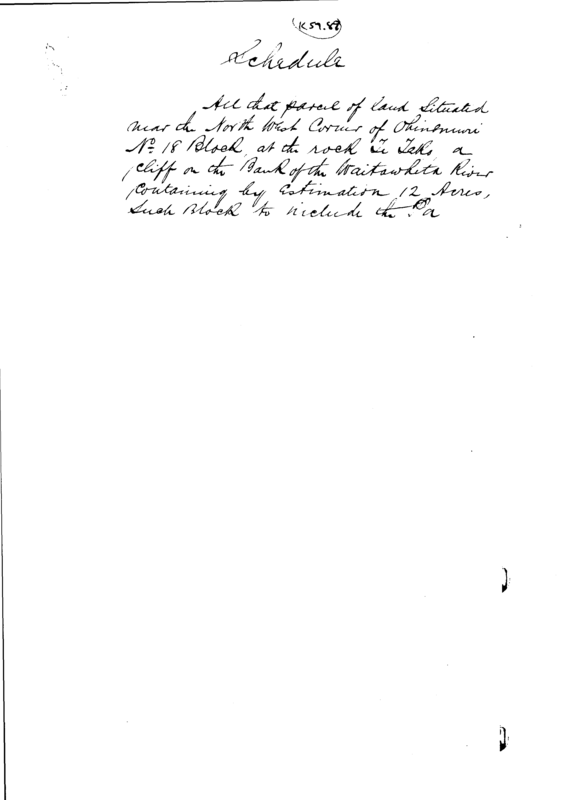 K 59.87
Schedule
All that parcel of land Situated
near the North West Corner of Ohinemuri
No 18 Block, at the rock Te Tako, a
cliff on the Bank of the Waitawheta River
containing by Estimation 12 Acres,
Such Block to include the Pa